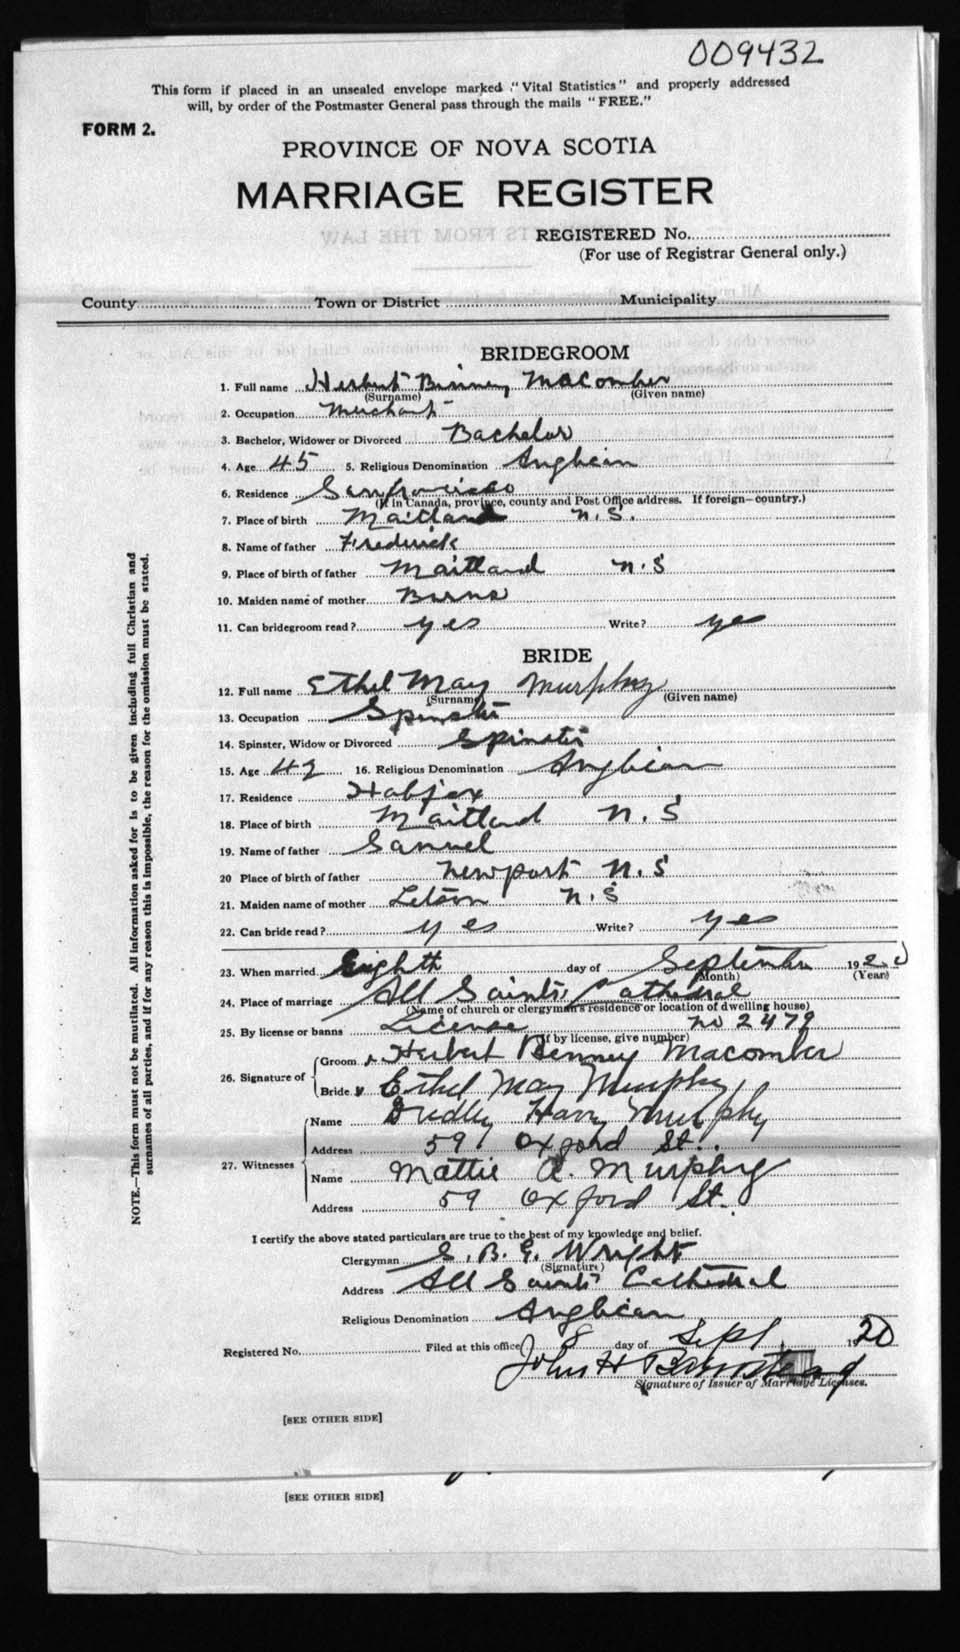 009432
This form if placed in an unsealed envelope marked "Vital Statistics" and properly addressed
will, by order of the Postmaster General pass through the mails "FREE."
FORM 2.
PROVINCE OF NOVA SCOTIA
MARRIAGE REGISTER
REGISTERED No.
(For use of Registrar General only.)
County Town or District Municipality
BRIDEGROOM
1. Full name Herbert Binney Macomber
(Surname) (Given name)
2. Occupation Merchant
3. Bachelor, Widower or Divorced Bachelor
4. Age 45 5. Religious Denomination Anglican
6. Residence San francisco
(If in Canada, province, county and Post Office address. If foreign—country.)
7. Place of birth Maitland N.S.
8. Name of father Frederick
9. Place of birth of father Maitland N.S
10. Maiden name of mother
11. Can bridegroom read? yes Write? yes
BRIDE
12. Full name Ethel May Murphy
(Surname) (Given name)
13. Occupation Spinster
14. Spinster, Widow or Divorced Spinster
15. Age 42 16. Religious Denomination Anglican
17. Residence Halifax
18. Place of birth Maitland N.S
19. Name of father Samuel
20 Place of birth of father Newport N.S
21. Maiden name of mother N.S
22. Can bride read? yes Write? yes
23. When married Eighth day of September 1920
(Month) (Year)
24. Place of marriage All Saints Cathedral
(Name of church or clergyman's residence or location of dwelling house)
25. By license or banns License no 2479
(If by license, give number)
26. Signature of Groom Herbert Binney Macomber
Bride Ethel May Murphy
27. Witnesses Name Dudley Harry Murphy
Address 59 Oxford St.
Name Mattie A. Murphy
Address 59 Oxford St.
I certify the above stated particulars are true to the best of my knowledge and belief.
Clergyman S. B. G. Wright
(Signature)
Address All Saints Cathedral
Religious Denomination Anglican
Registered No. Filed at this office 8 day of Sept 1920
John H Barnstead
Signature of Issuer of Marriage Licenses.
[SEE OTHER SIDE]
[SEE OTHER SIDE]
NOTE.—This form must not be mutilated. All information asked for is to be given including full Christian and
surnames of all parties, and if for any reason this is impossible, the reason for the omission must be stated.